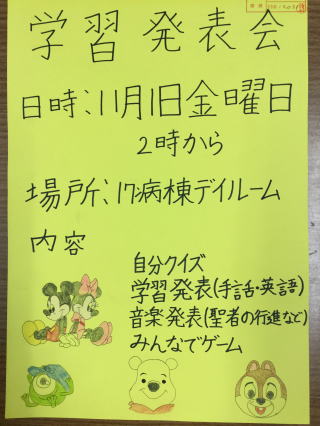 学習発表会
日時：11月1日金曜日
2時から
場所：17病棟デイルーム
内容
自分クイズ
学習発表(手話・英語)
音楽発表(聖者の行進など)
みんなでゲーム